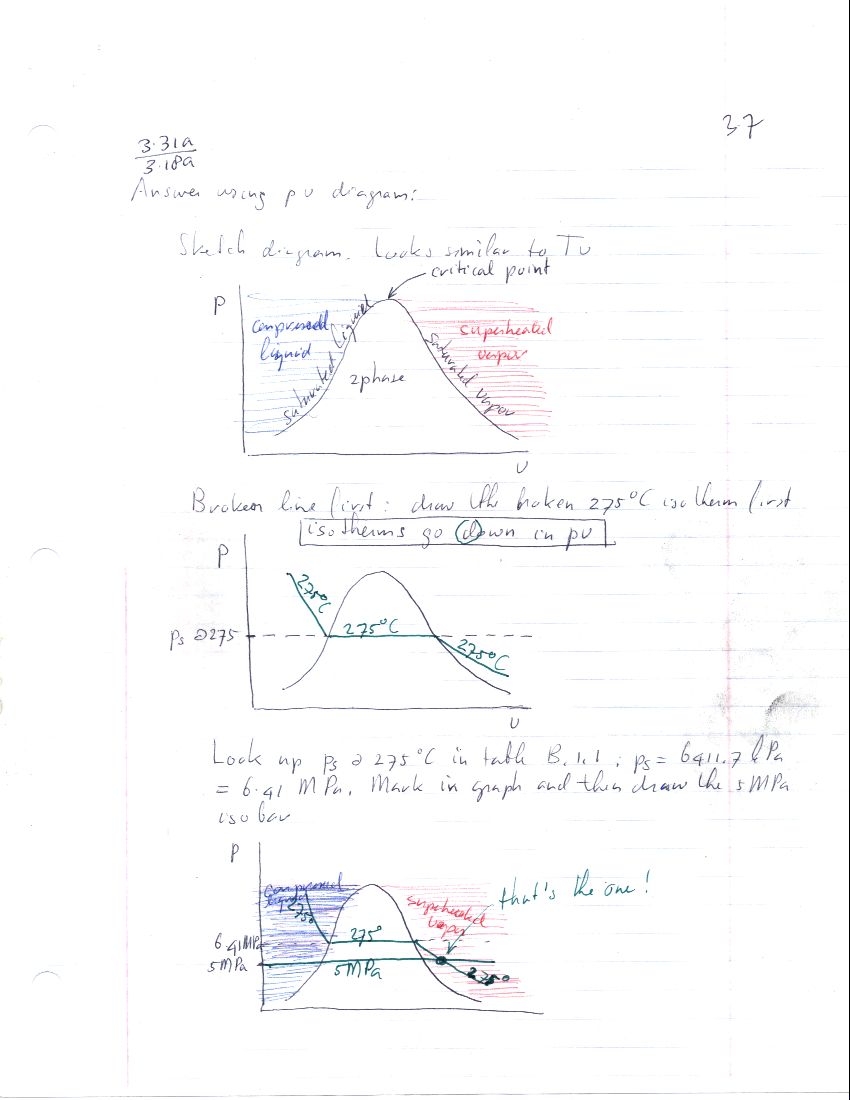 37
3.31a
3.18a
Answer using pv diagram:
Sketch diagram. Looks similar to Tv
critical point
P
compressed
liquid
saturated liquid
2phase
saturated vapor
superheated
vapor
v
Broken line first: draw the broken 275°C isotherm first
isotherms go down in pv
P
275°C
Ps @ 275
275°C
275°C
v
Look up Ps @ 275°C in table B.1.1; Ps = 6411.7 kPa
= 6.41 MPa. Mark in graph and then draw the 5MPa
isobar
P
compressed
liquid
275°
superheated
vapor
that's the one!
6.41MPa
275°
5MPa
5MPa
275°